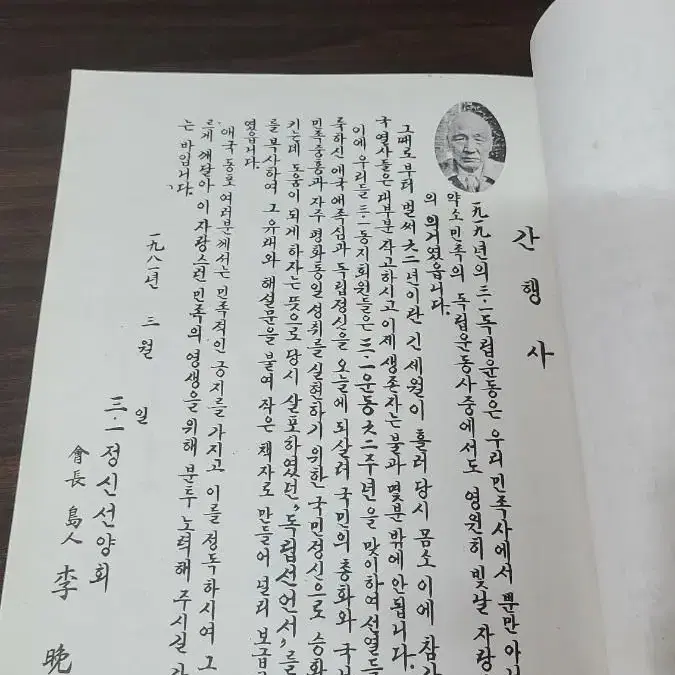 간행사
一九一九년의 三·一독립운동은 우리 민족사에서 뿐만 아니
약소민족의 독립운동사중에서도 영원히 빛날 자랑
의 의거였읍니다.
그때로부터 벌써 六二년이란 긴 세월이 흘러 당시 몸소 이에 참가
국 열사들은 대부분 작고하시고 이제 생존자는 불과 몇분 밖에 안됩니다.
이에 우리들 三·一동지회원들은 三·一운동 六二주년을 맞이하여 선열들
록하신 애국애족심과 독립정신을 오늘에 되살려 국민의 총화와 국
민족중흥과 자주 평화통일 성취를 실현하기 위한 국민정신으로 승화
키는데 도움이 되게 하자는 뜻으로 당시 살포하였던 "독립선언서"를
를 복사하여 그 유래와 해설문을 붙여 작은 책자로 만들어 널리 보급
였읍니다.
애국 동포 여러분께서는 민족적인 긍지를 가지고 이를 정독하시여 그
르게 깨달아 이 자랑스런 민족의 영생을 위해 분투 노력해 주시길
는 바입니다.
一九八一년 三월 일
三·一정신선양회
會長 島人 李 晩